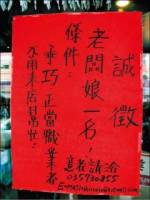 誠徵
老闆娘一名!
條件:
乖巧正當職業者
不用來店幫忙!
意者請洽
035730855